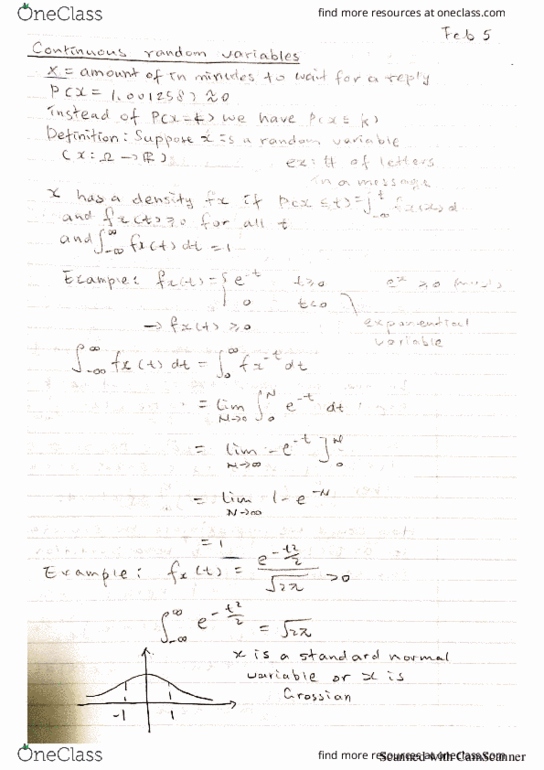 OneClass
find more resources at oneclass.com
Feb 5
Continuous random variables
X = amount of in minutes to wait for a reply
P(X = 1.001258) ≈0
instead of P(X=t) we have P(X≤ t)
Definition: Suppose x is a random variable
(X: Ω → R)
ex: # of letters
in a message
x has a density fx if P(X ≤t)=∫_{-∞}^{t} fx(x)d
and fx(t) ≥0 for all t
and ∫_{-∞}^{∞} fx(t) dt =1
Example: fx(t)= { e^{-t} t≥0
0 t<0
e^x ≥0
→ fx(t) ≥0
exponential
variable
∫_{-∞}^{∞} fx(t) dt = ∫_{0}^{∞} fx^{-t} dt
= lim_{N→0} ∫_{0}^{N} e^{-t} dt
= lim_{N→∞} -e^{-t} ]_{0}^{N}
= lim_{N→∞} 1-e^{-N}
=1
Example: fx(t) = e^{-t²/2} / √2π >0
∫_{-∞}^{∞} e^{-t²/2} = √2π
x is a standard normal
variable or x is
Grossian
-1 1
OneClass
find more resources at oneclass.com
Scanned with CamScanner